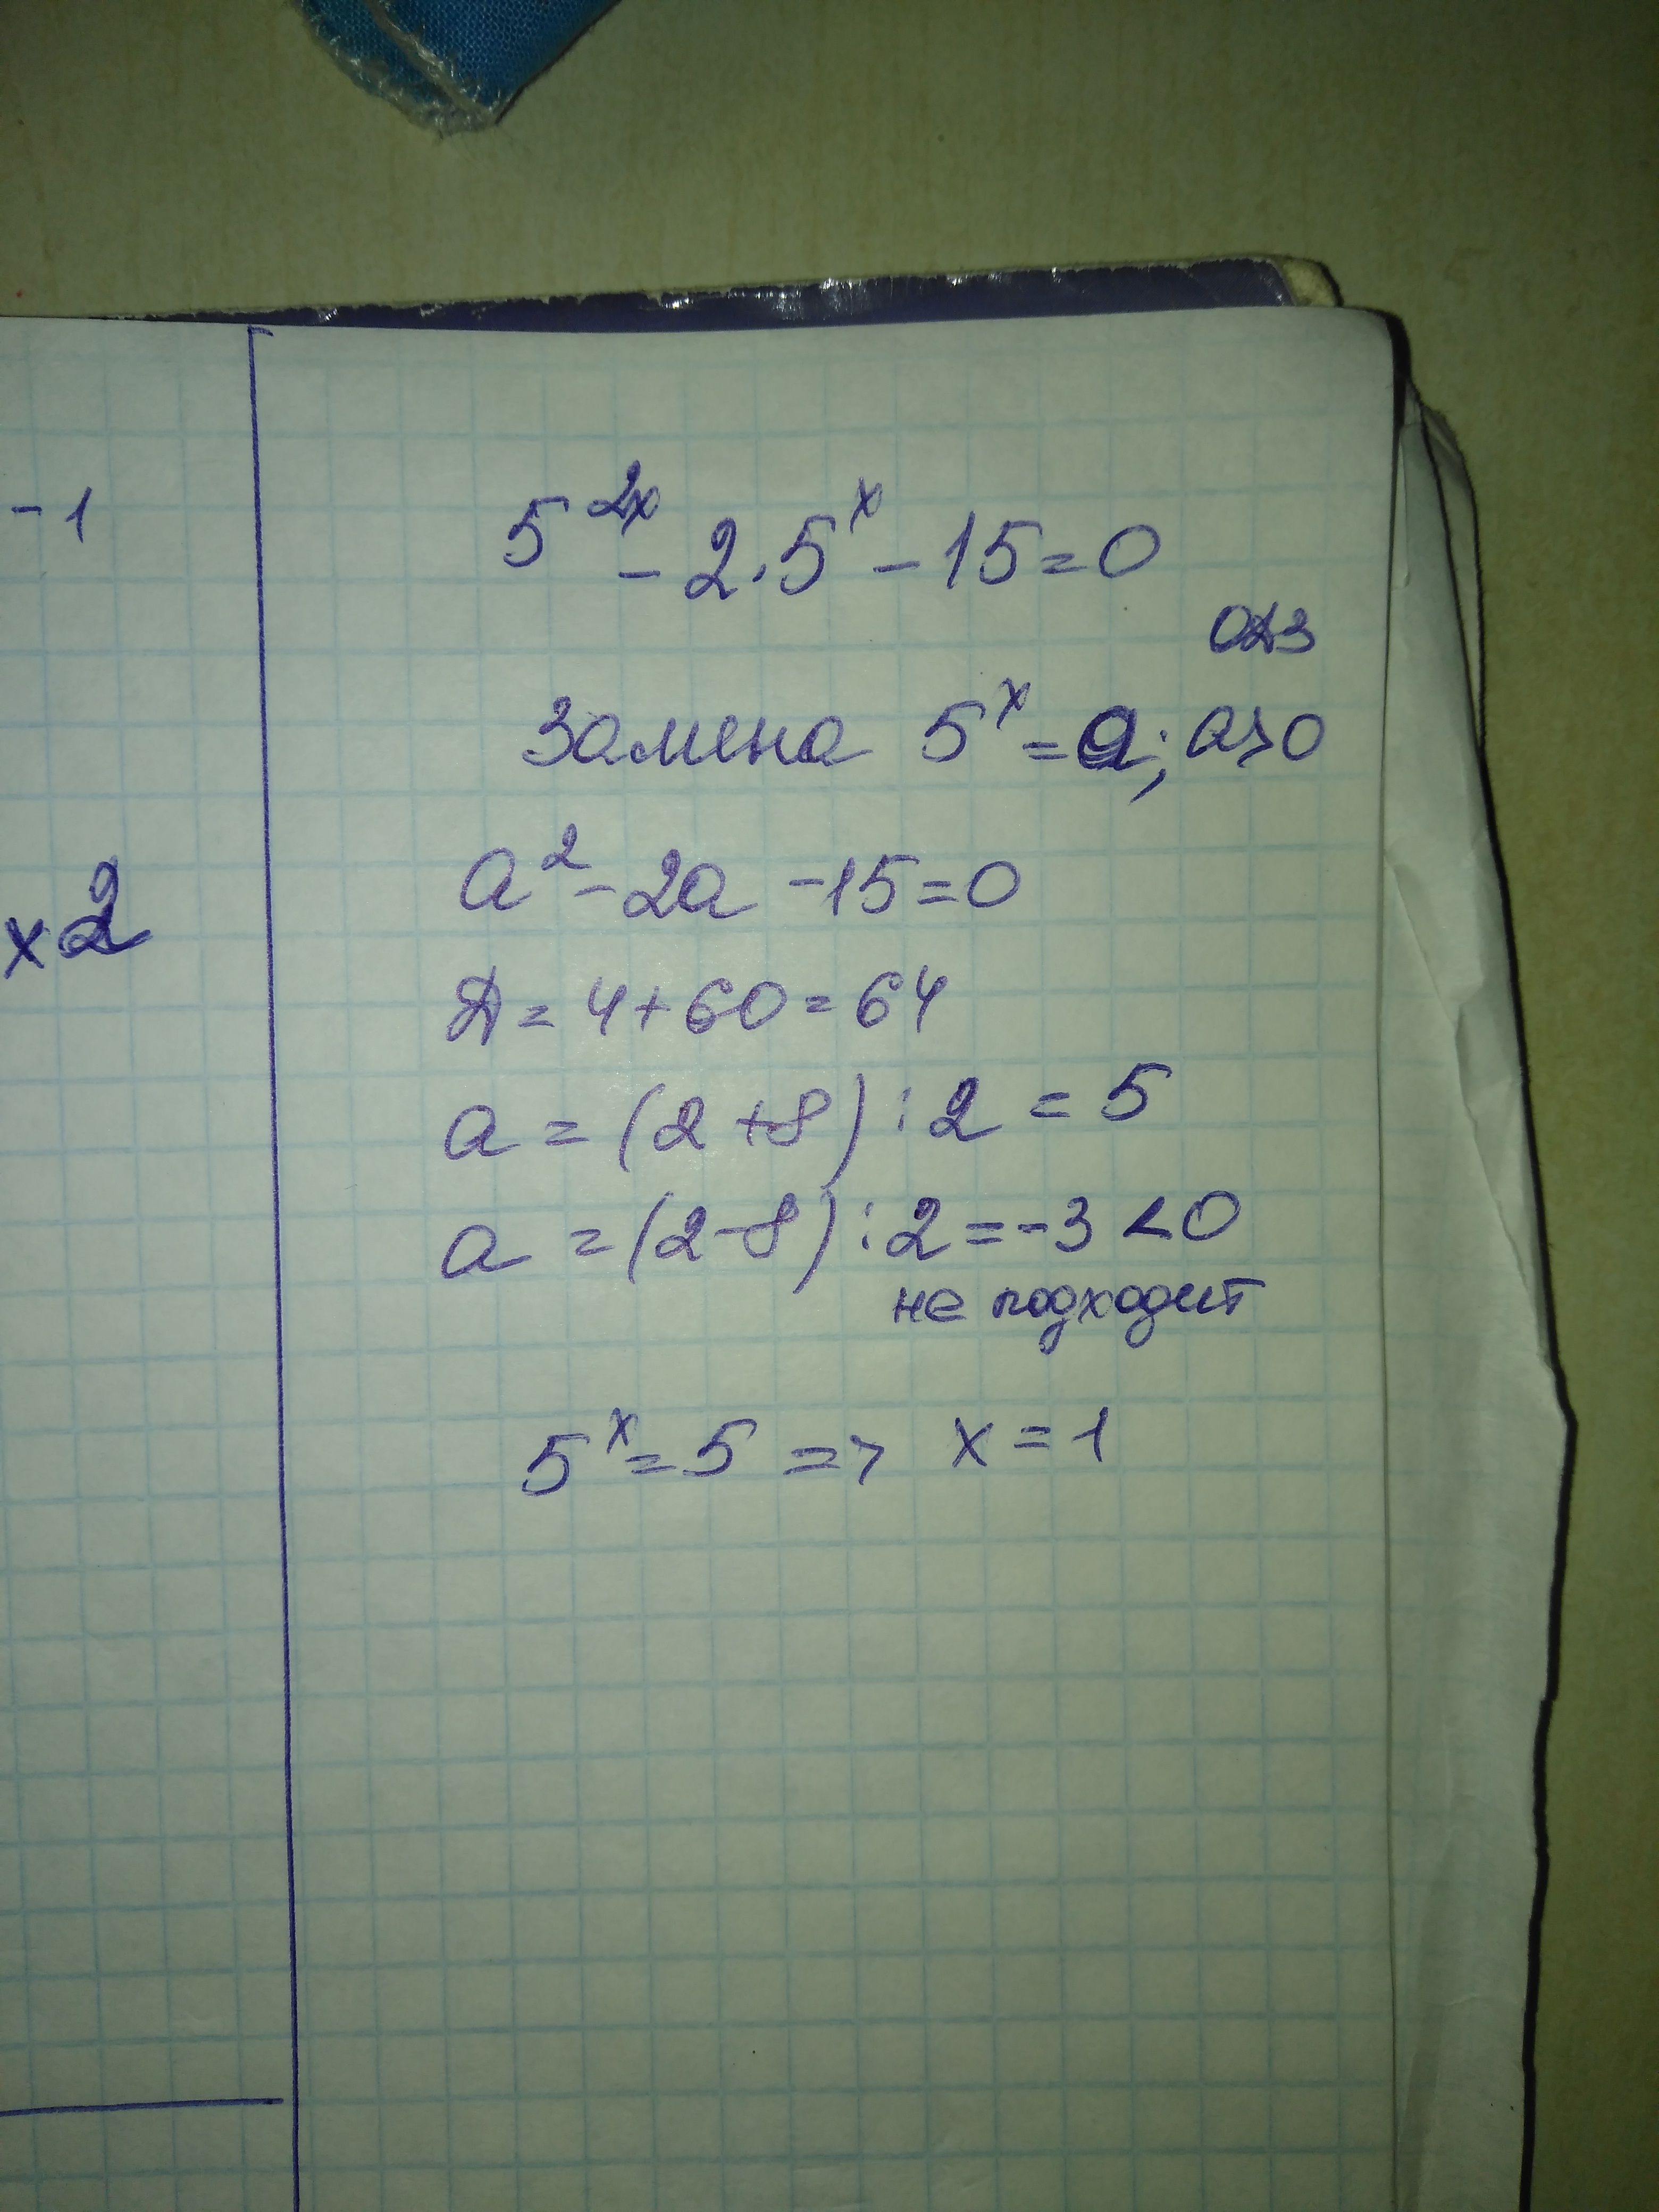 -1
x2
5^2x - 2·5^x - 15=0
ОДЗ
Замена 5^x = a; a>0
a^2 - 2a - 15=0
Д = 4+60=64
a = (2+8):2 = 5
a = (2-8):2=-3<0
не подходит
5^x=5 => x=1